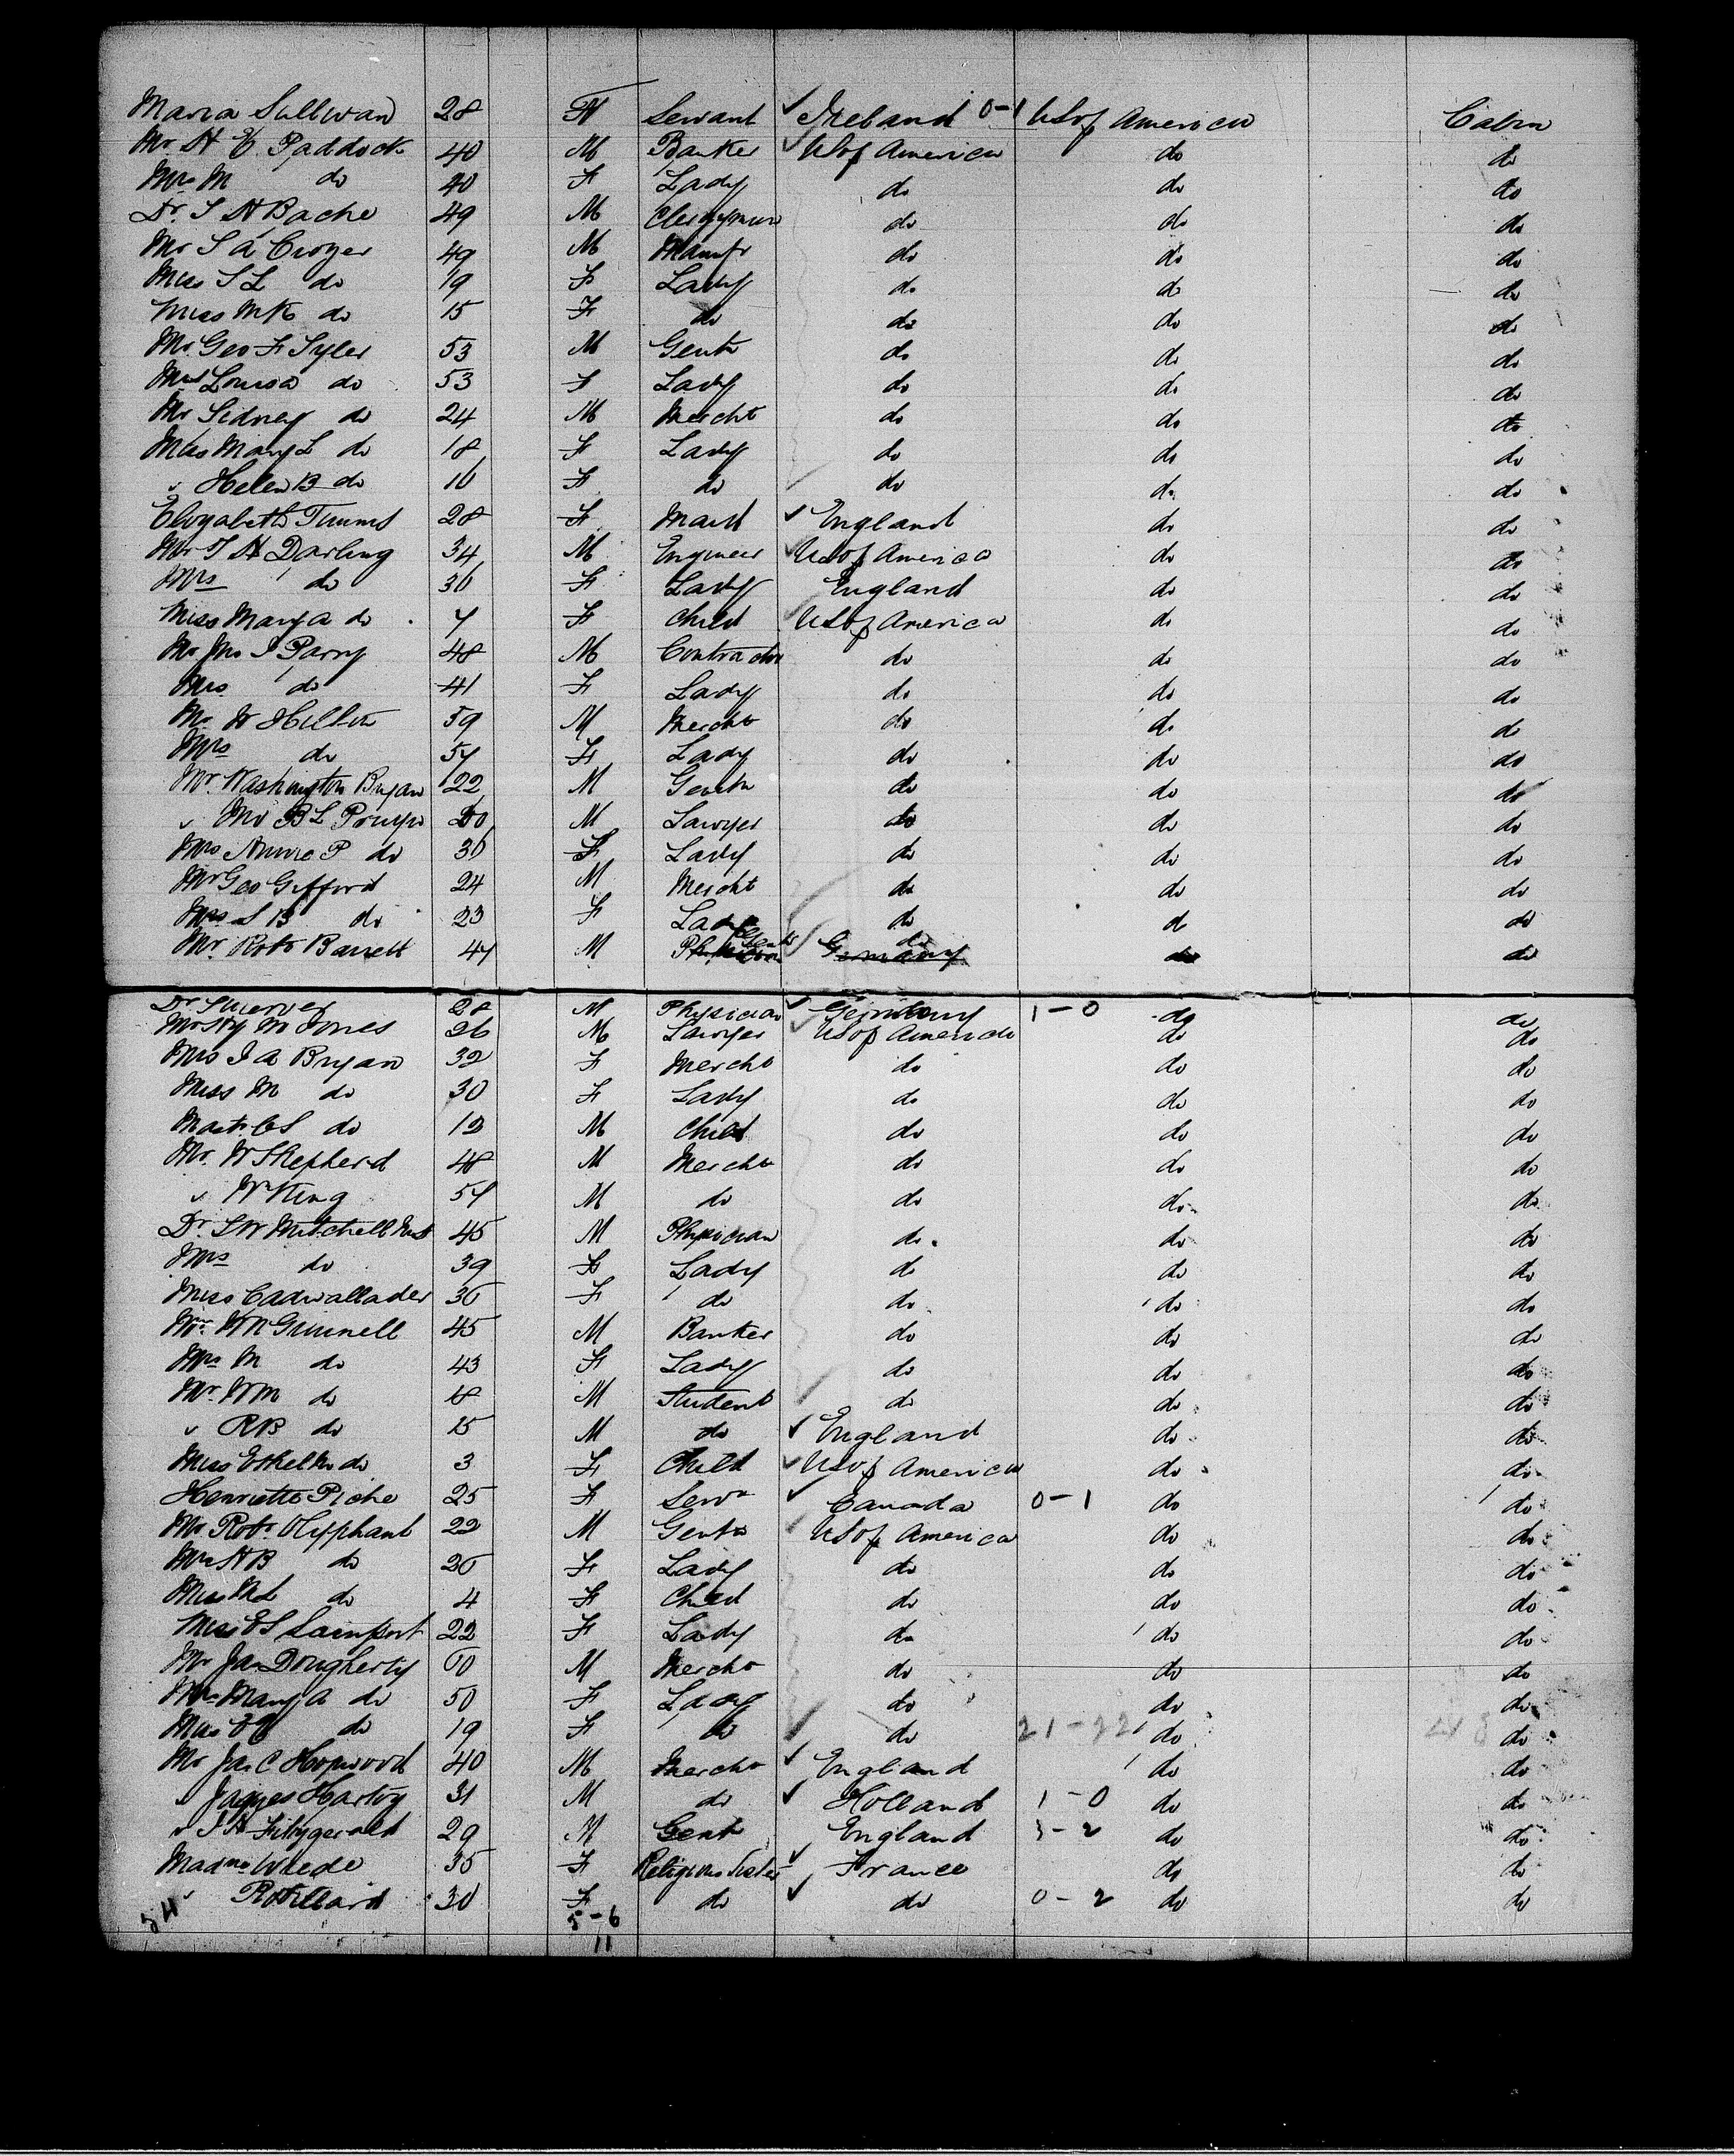 Maria Sullivan 28 F Servant ✓ Ireland 0-1 US of America Cabin
Mr H Paddock 40 M Banker ✓ US of America do do
Mrs M do 40 F Lady do do do
Dr. S H Bache 49 M Clergyman do do do
Mr S A Crozer 49 M Manufr do do do
Miss S L do 19 F Lady do do do
Miss M K do 15 F do do do do
Mr Geo F Tyler 53 M Gentn do do do
Mrs Louisa do 53 F Lady do do do
Mr Sidney do 24 M Mercht do do do
Miss Mary L do 18 F Lady do do do
" Helen B do 16 F do do do do
Elizabeth Timms 28 F Maid ✓ England do do
Mr T H Darling 34 M Engineer ✓ US of America do do
Mrs do 36 F Lady England do do
Miss Mary A do 7 F Child ✓ US of America do do
Mr Jno I Parry 48 M Contractor do do do
Mrs do 41 F Lady do do do
Mr W 59 M Mercht do do do
Mrs do 57 F Lady do do do
Mr. Washington Bryan 22 M Gentn do do do
" Mr B L Pruyn M Lawyer do do do
Mrs Annie P do 36 F Lady do do do
Mr Geo Gifford 24 M Mercht do do do
Mrs S B do 23 F Lady do do do
Mr. Robt Barrett 47 M Physician Gentn ✓ Germany do do do
Dr 28 M Physician ✓ Germany 1-0 do do
Mr Hy M Jones 26 M Lawyer ✓ US of America do do
Mrs I A Bryan 32 F Mercht do do do
Miss M do 30 F Lady do do do
Mastr do 12 M Child do do do
Mr. W Shepherd 48 M Mercht do do do
" Wm King 57 M do do do do
Dr. S W Mitchell 45 M Physician do do do
Mrs do 39 F Lady do do do
Miss Cadwallader 36 F do do do do
Mr. Grinnell 45 M Banker do do do
Mrs M do 43 F Lady do do do
Mr. Wm do 18 M Student do do do
" R B do 15 M do ✓ England do do
Miss Ethel M do 3 F Child ✓ US of America do do
Henriette Piche 25 F Servt ✓ Canada 0-1 do do
Mr Robt. Olyphant 22 M Gentn ✓ US of America do do
Mrs H B do 26 F Lady do do do
Miss do 4 F Child do do do
Miss E S Lamport 22 F Lady do do do
Mr Jas Dougherty 60 M Mercht do do do
Mrs Mary A do 50 F Lady do do do
Miss do 19 F do do 21-22 do do
Mr Jas C Hopwood 40 M Mercht ✓ England do do
" Jaques Hartog 31 M do ✓ Holland 1-0 do do
" J H Fitzgerald 29 M Gentn England 3-2 do do
Madme Wiede 35 F Religious Sister ✓ France do do
" Robillard 30 F do ✓ do 0-2 do do
54 5-6
11